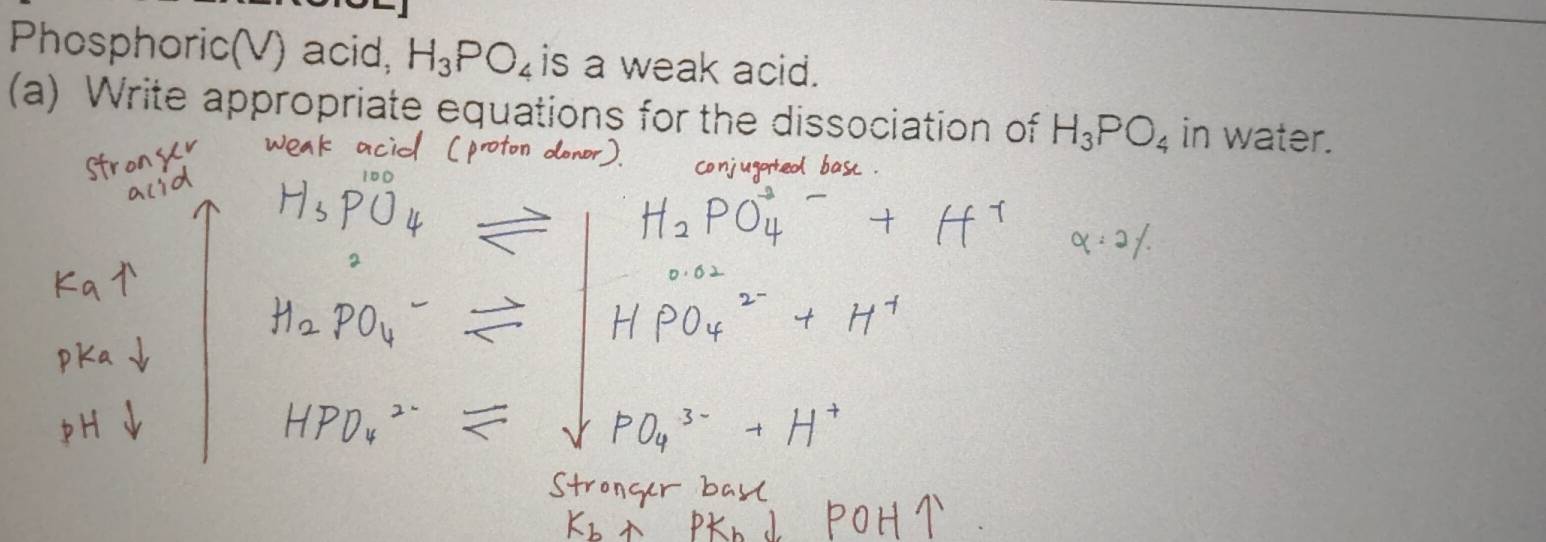 Phosphoric(V) acid, H₃PO₄ is a weak acid.
(a) Write appropriate equations for the dissociation of H₃PO₄ in water.
stronger acid
weak acid (proton donor).
conjugated base.
100
2
H₃PO₄ ⇌ H₂PO₄⁻ + H⁺ α = 2%
2
0.02
Ka ↑
H₂PO₄⁻ ⇌ HPO₄²⁻ + H⁺
pKa ↓
pH ↓
HPO₄²⁻ ⇌ PO₄³⁻ + H⁺
Stronger base
Kb ↑ PKb ↓ POH ↑.